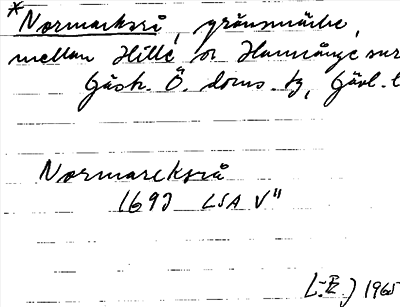 *Normarksrå, gränsmärke,
mellan Hille o. Hamrånge snr
Gästr. Ö. doms. tg, Gävl. l
Normarcksrå
1693 LSA V"
1965